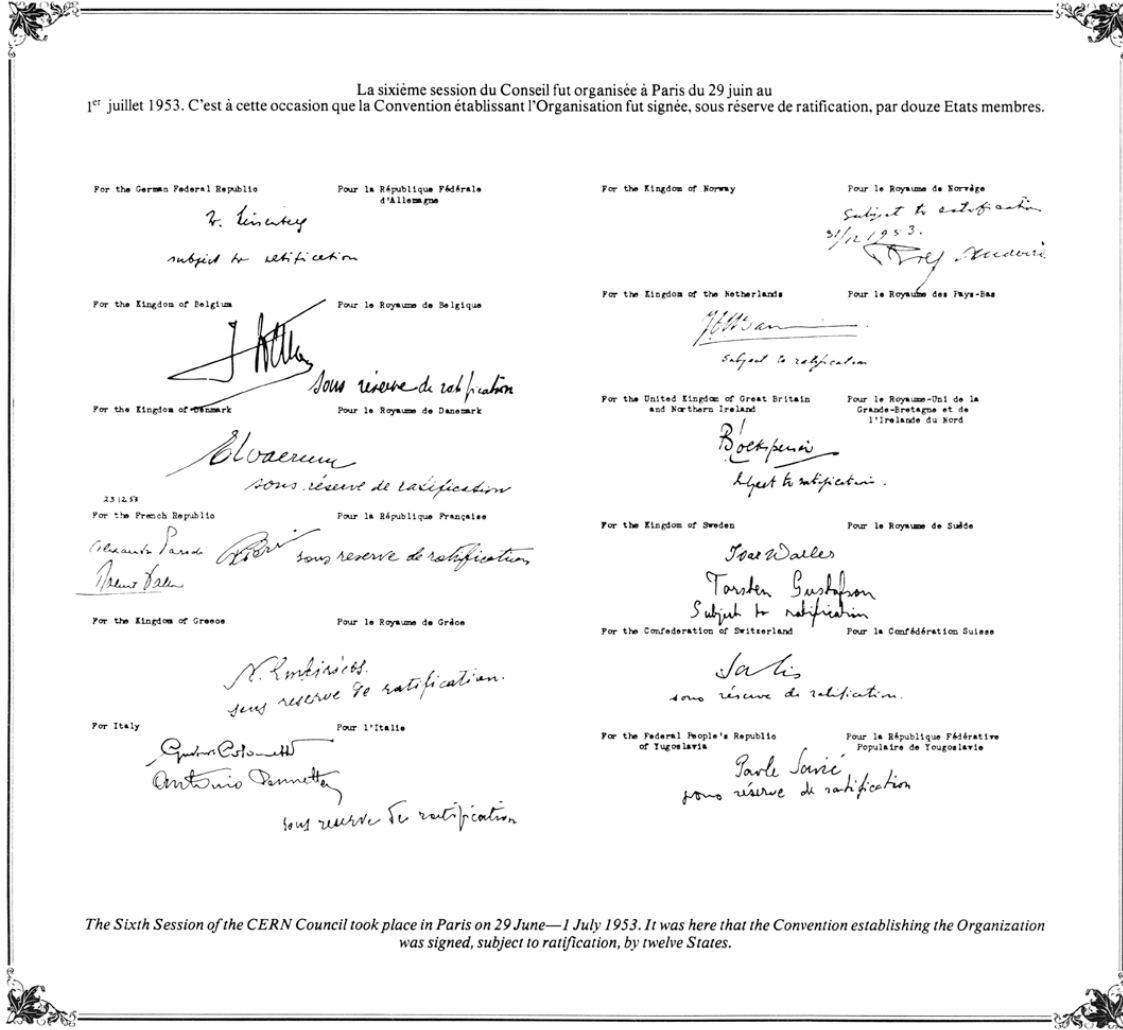 La sixième session du Conseil fut organisée à Paris du 29 juin au
1er juillet 1953. C'est à cette occasion que la Convention établissant l'Organisation fut signée, sous réserve de ratification, par douze Etats membres.
For the German Federal Republic
Pour la République Fédérale
d'Allemagne
subject to ratification
For the Kingdom of Belgium
Pour le Royaume de Belgique
sous réserve de ratification
For the Kingdom of Denmark
Pour le Royaume de Danemark
sous réserve de ratification
23 12 53
For the French Republic
Pour la République Française
Alexandre Parodi
sous reserve de ratification
For the Kingdom of Greece
Pour le Royaume de Grèce
sous reserve de ratification.
For Italy
Pour l'Italie
Antonio Pennetta
sous reserve de ratification
For the Kingdom of Norway
Pour le Royaume de Norvège
Subject to ratification
31/12 1953.
Rolf
For the Kingdom of the Netherlands
Pour le Royaume des Pays-Bas
Subject to ratification
For the United Kingdom of Great Britain
and Northern Ireland
Pour le Royaume-Uni de la
Grande-Bretagne et de
l'Irelande du Nord
Subject to ratification.
For the Kingdom of Sweden
Pour le Royaume de Suède
Ivar Waller
Torsten Gustafson
Subject to ratification
For the Confederation of Switzerland
Pour la Confédération Suisse
Salis
sous réserve de ratification.
For the Federal People's Republic
of Yugoslavia
Pour la République Fédérative
Populaire de Yougoslavie
Pavle Savić
sous réserve de ratification
The Sixth Session of the CERN Council took place in Paris on 29 June—1 July 1953. It was here that the Convention establishing the Organization
was signed, subject to ratification, by twelve States.